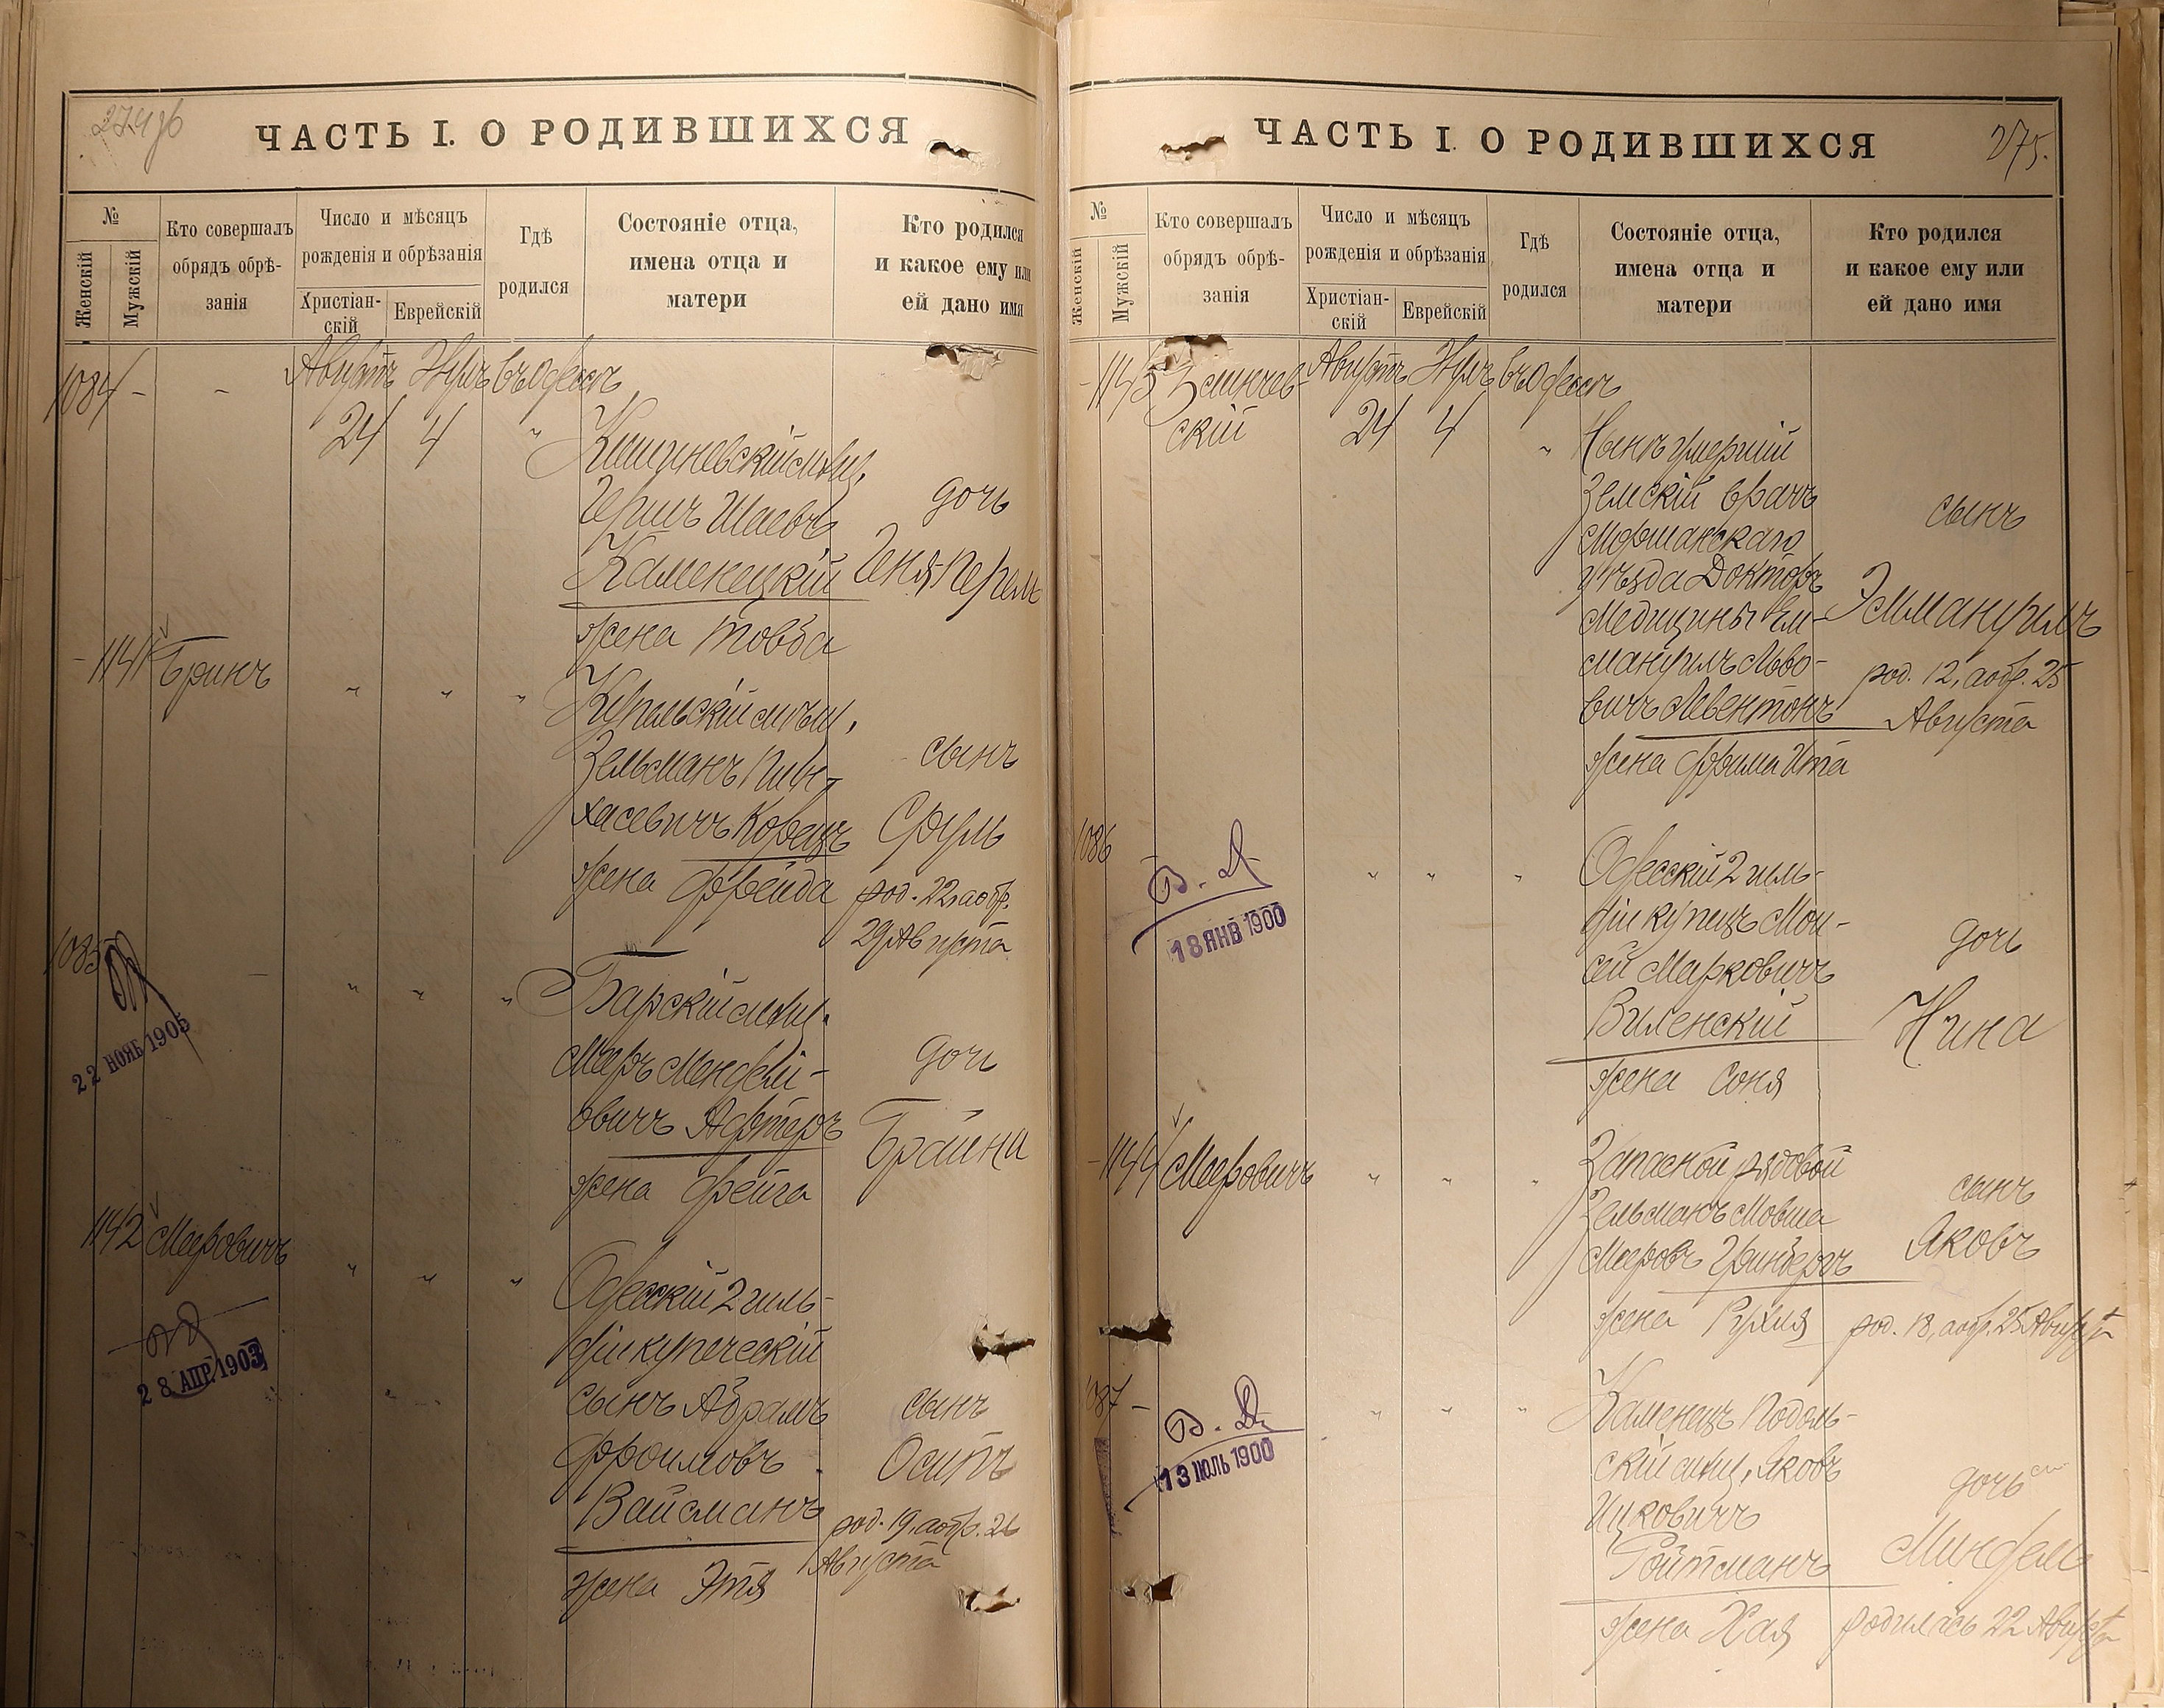 274 об
ЧАСТЬ I. О РОДИВШИХСЯ
№
Женскій
Мужскій
Кто совершалъ
обрядъ обрѣ-
занія
Число и мѣсяцъ
рожденія и обрѣзанія
Христіан-
скій
Еврейскій
Гдѣ
родился
Состояніе отца,
имена отца и
матери
Кто родился
и какое ему или
ей дано имя
1084 - - Августъ Элулъ въ Одессѣ
24 4 "
Кишиневскій мѣщ.
Гершъ Шаевъ
Каменецкій
жена Товба
дочь
Геня-Перель
- 1141 Бринъ " " "
мѣщ.
Зельманъ Пин-
хасевичъ Корецъ
жена Фрейда
сынъ
Сруль
род. 22, а обр.
29 Августа
1085 - " " "
22 НОЯБ 1905
Барскій мѣщ.
Меръ Мендель-
овичъ Афтеръ
жена Фейга
дочь
Браина
1142 Мееровичъ " " "
28 АПР 1903
Одесскій 2 гиль-
діи купеческій
сынъ Абрамъ
Фроимовъ
Вайсманъ
жена Этя
сынъ
Осипъ
род. 19, а обр. 26
Августа
ЧАСТЬ I. О РОДИВШИХСЯ
275.
№
Женскій
Мужскій
Кто совершалъ
обрядъ обрѣ-
занія
Число и мѣсяцъ
рожденія и обрѣзанія
Христіан-
скій
Еврейскій
Гдѣ
родился
Состояніе отца,
имена отца и
матери
Кто родился
и какое ему или
ей дано имя
Августъ Элулъ въ Одессѣ
скій 24 4 "
Нынѣ умершій
Земскій врачъ
Моршанскаго
уѣзда Докторъ
Медицины Ем-
мануилъ Льво-
вичъ Левентонъ
жена Фрима Ита
сынъ
Эммануилъ
род. 12, а обр. 25
Августа
1086 - " " "
В. Д.
18 ЯНВ 1900
Одесскій 2 гиль-
діи купецъ Мои-
сей Марковичъ
Виленскій
жена Соня
дочь
Нина
- 1144 Мееровичъ " " "
Запасной рядовой
Зельманъ Мовша
Мееровъ Гринбергъ
жена Рухля
сынъ
Яковъ
род. 18, а обр. 25 Августа
1087 - " " "
В. Д.
13 ІЮЛЬ 1900
Каменецъ Подоль-
скій мѣщ. Яковъ
Ицковичъ
Ройтманъ
жена Хая
дочь
Миндель
родилась 22 Августа